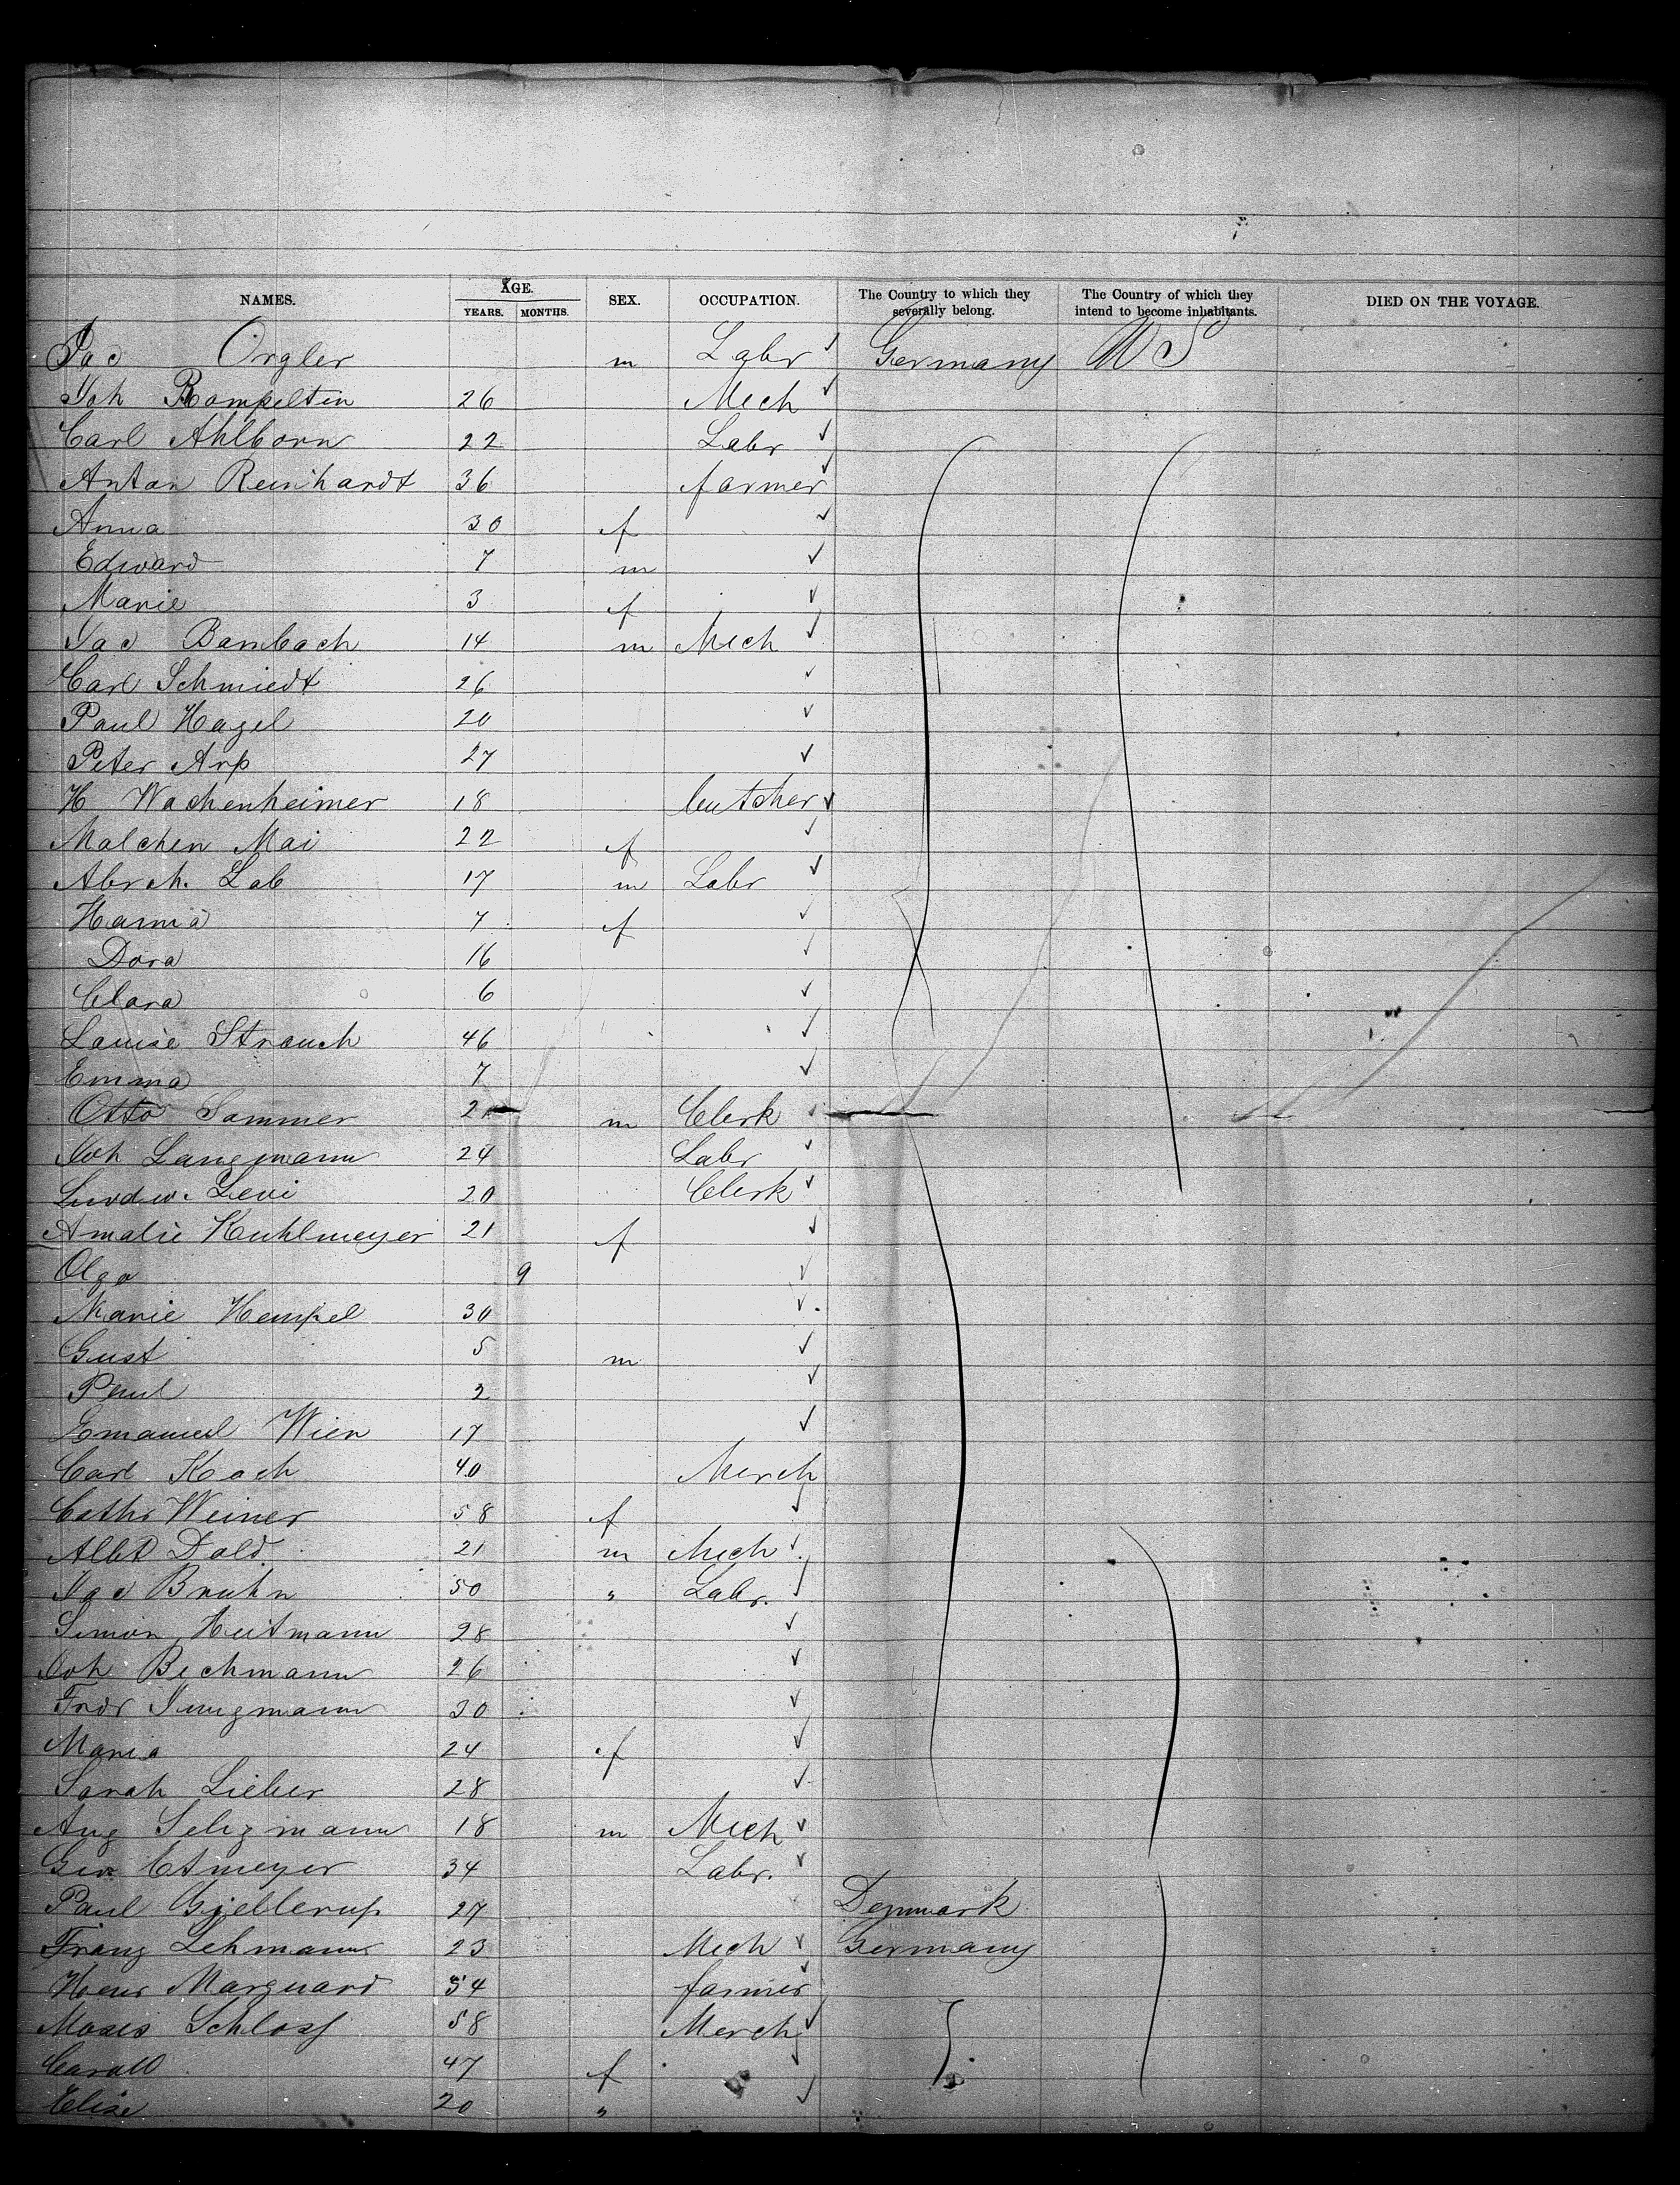 NAMES. AGE. SEX. OCCUPATION. The Country to which they severally belong. The Country of which they intend to become inhabitants. DIED ON THE VOYAGE.
YEARS. MONTHS.
Jac Orgler m Labr Germany U S
Joh Rompeltin 26 Mech
Carl Ahlborn 22 Labr
Anton Reinhardt 36 farmer
Anna 30 f
Edward 7 m
Marie 3 f
Jac Bambach 14 m Mech
Carl Schmiedt 26
Paul Hagel 20
Peter Arp 27
H Wachenheimer 18 butcher
Malchen Mai 22 f
Abrah. Lab 17 m Labr
Hanna 7 f
Dora 16
Clara 6
Louise Strauch 46
Emma 7
Otto Sommer 21 m Clerk
Joh Langmann 24 Labr
Ludw. Levi 20 Clerk
Amalie Kuhlmeyer 21 f
Olga 9
Marie Hempel 30
Gust 5 m
Paul 2
Emanuel Wien 17
Carl Koch 40 Merch
Cathr Weiner 58 f
Albt Dold 21 m Mech
Jac Bruhn 50 " Labr.
Simon Heitmann 28
Joh Bechmann 26
Fredr Jungmann 30
Maria 24 f
Sarah Lieber 28
Aug Seligmann 18 m Mech
Geo Etmeyer 34 Labr.
Paul Gjellerup 27 Denmark
Franz Lehmann 23 Mech Germany
Henr Marquard 54 farmer
Moses Schloss 58 Merch
47 f
Elise 20 "